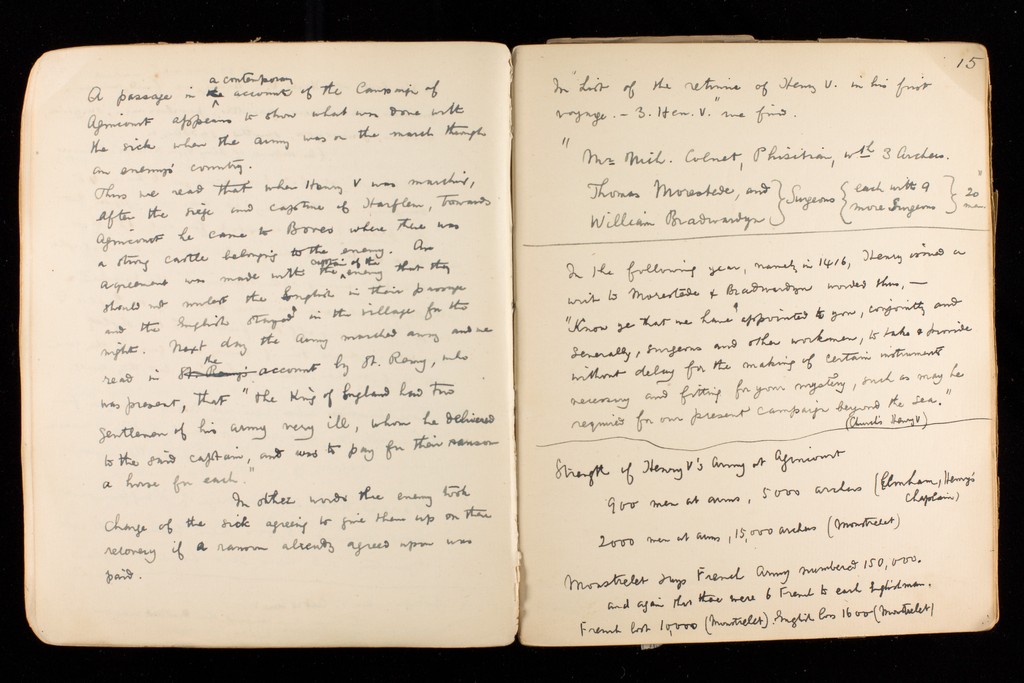 a contemporary
A passage in the account of the Campaign of
Agincourt appears to show what was done with
the sick when the army was on the march through
an enemy's country.
Thus we read that when Henry V was marching,
after the siege and capture of Harfleur, towards
Agincourt he came to Boves where there was
a strong castle belonging to the enemy. An
agreement was made with the captain of the enemy that they
should not molest the English in their passage
and the English stayed in the village for the
night. Next day the army marched away and we
read in St. Remy's the account by St. Remy, who
was present, that "the King of England had two
gentlemen of his army very ill, whom he delivered
to the said captain, and was to pay for their ransom
a horse for each."
In other words the enemy took
charge of the sick agreeing to give them up on their
recovery if a ransom already agreed upon was
paid.
15
In "List of the retinue of Henry V. in his first
voyage. - 3. Hen. V." we find.
"Mr Nich. Colnet, Phisitian, wth 3 Archers.
Thomas Morestede, and
William Bradwardyn } Surgeons { each with 9 more Surgeons } 20 men"
In the following year, namely in 1416, Henry issued a
writ to Morestede & Bradwardyn worded thus, —
"Know ye that we have appointed to you, conjointly and
severally, surgeons and other workmen, to take & provide
without delay for the making of certain instruments
necessary and fitting for your mystery, such as may be
required for our present campaign beyond the sea."
(Church's Henry V)
Strength of Henry V's Army at Agincourt
900 men at arms, 5000 archers (Elmham, Henry's
Chaplain)
2000 men at arms, 15,000 archers (Monstrelet)
Monstrelet says French Army numbered 150,000.
and again that there were 6 French to each Englishman.
French lost 10,000 (Monstrelet). English loss 1600 (Monstrelet)